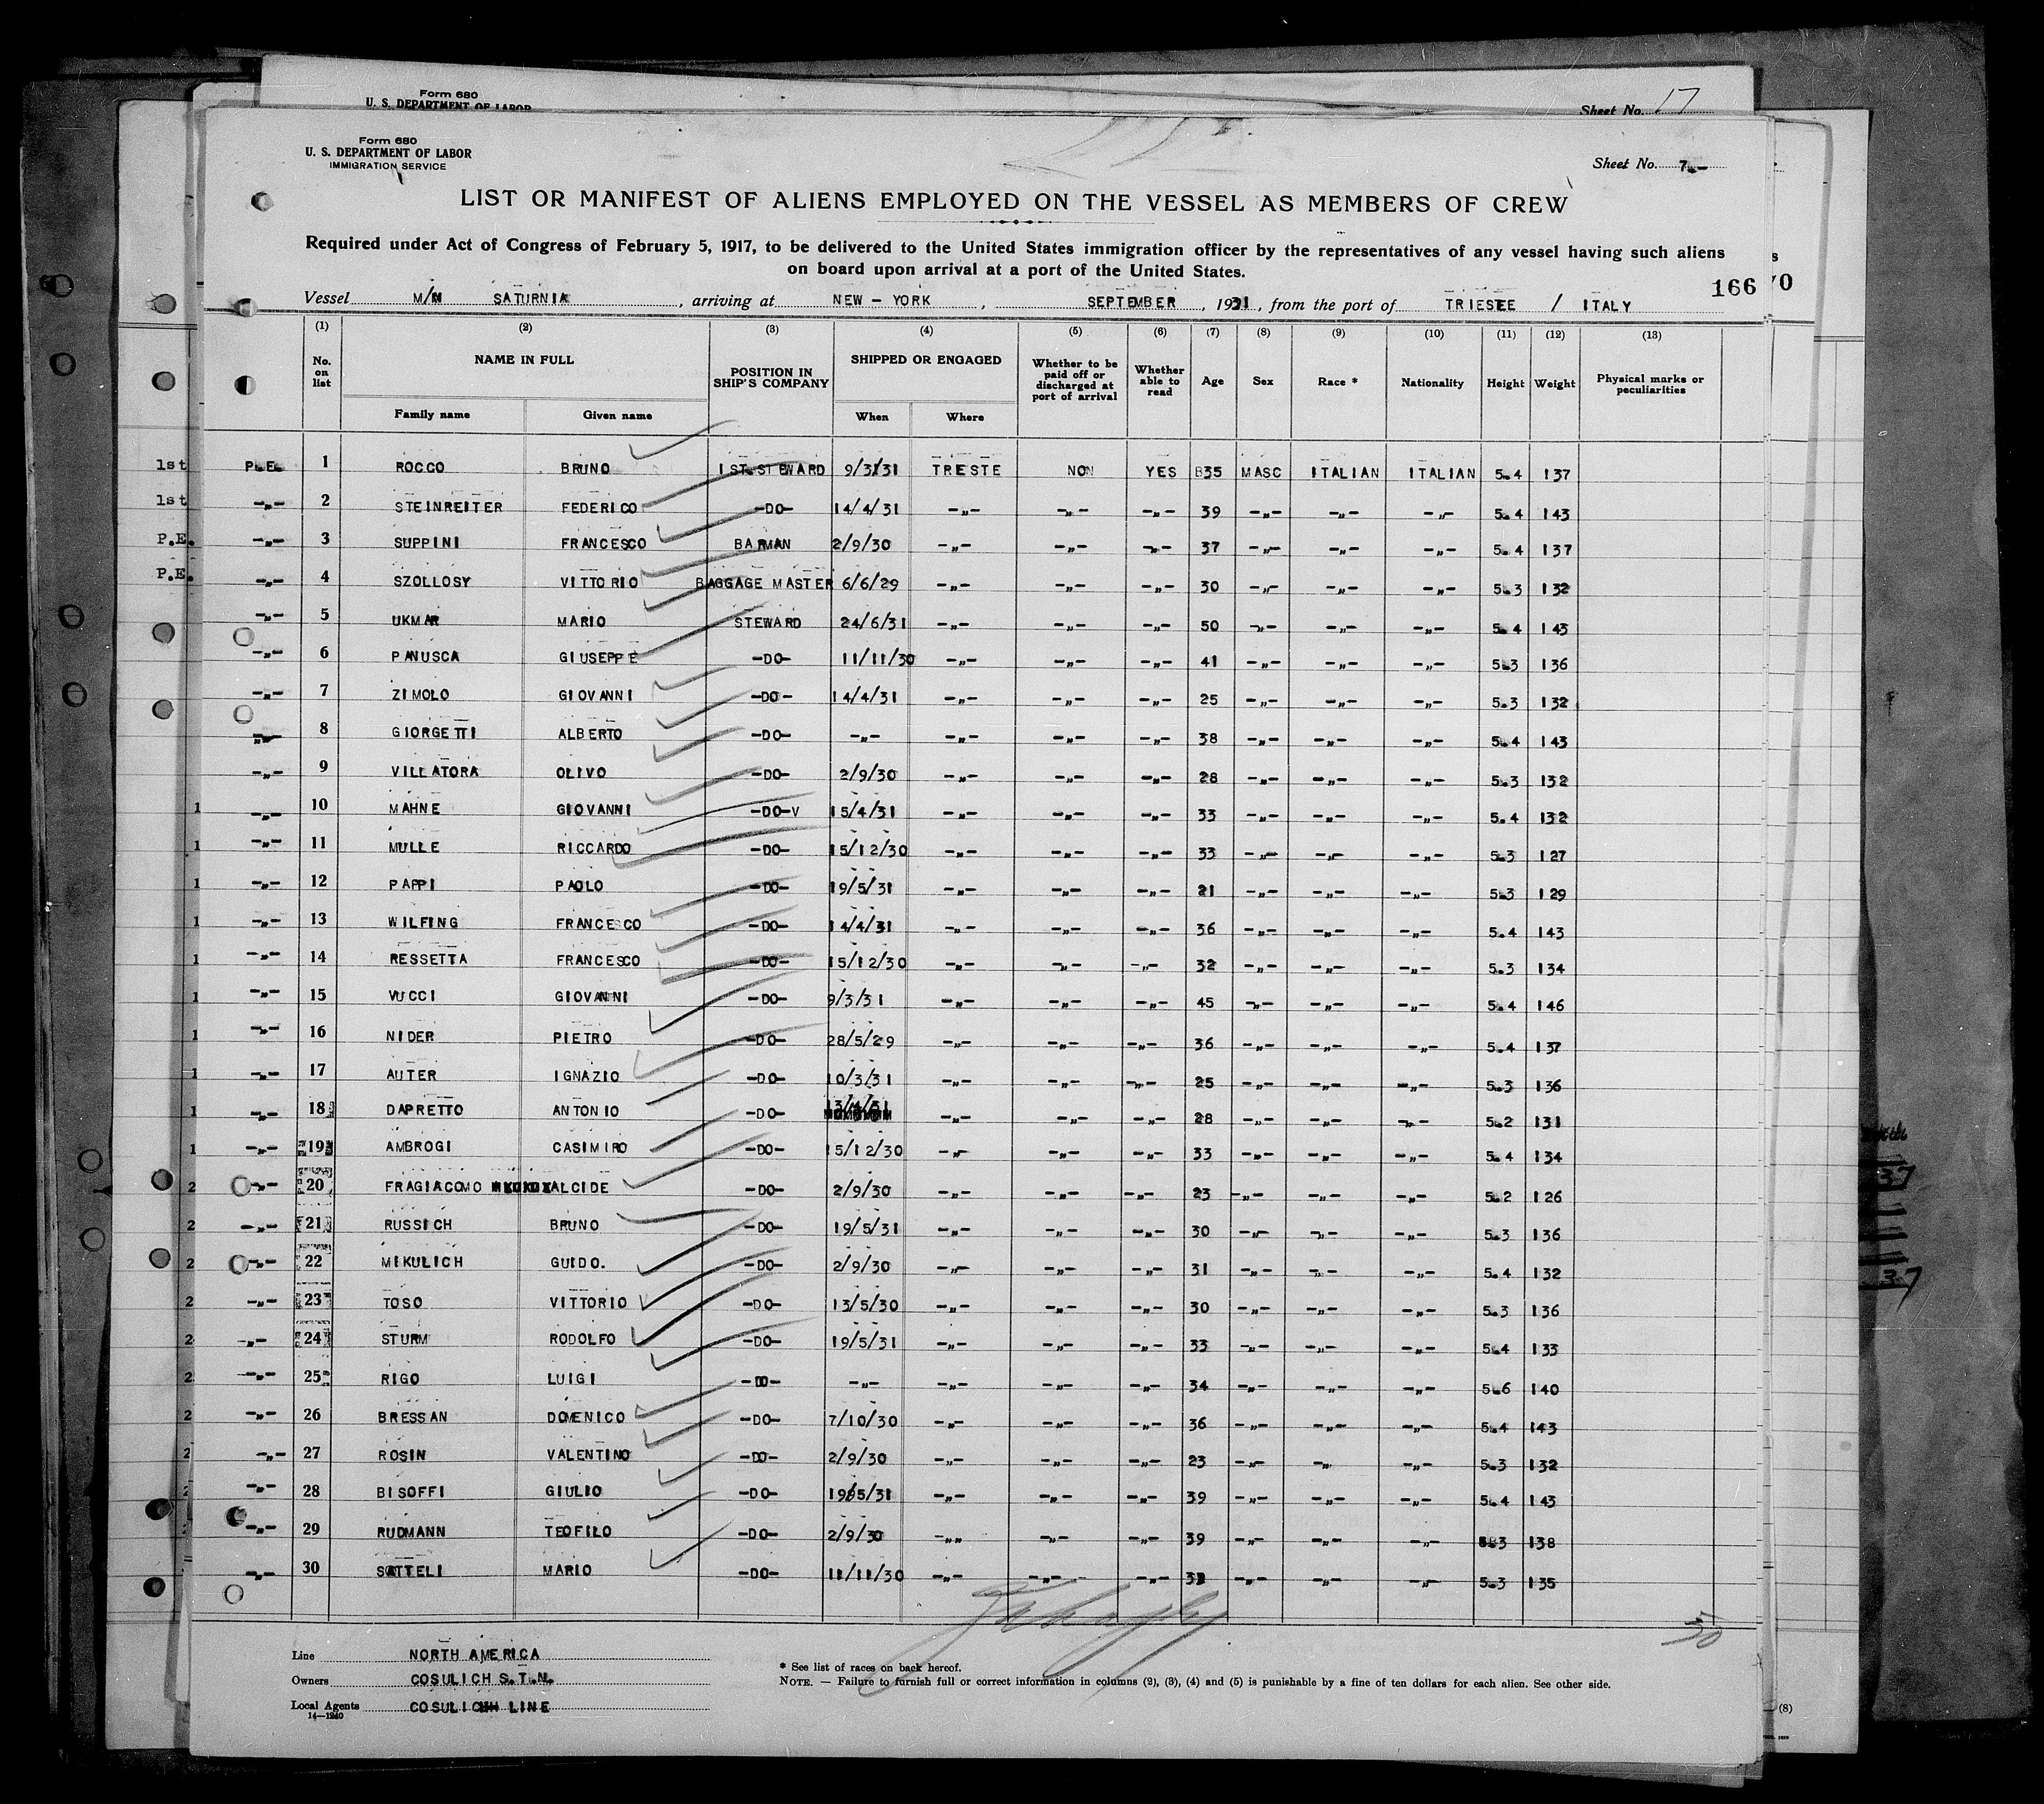 Form 680
U. S. DEPARTMENT OF LABOR
Sheet No. 17
Form 680
U. S. DEPARTMENT OF LABOR
IMMIGRATION SERVICE
Sheet No. 7.-
LIST OR MANIFEST OF ALIENS EMPLOYED ON THE VESSEL AS MEMBERS OF CREW
Required under Act of Congress of February 5, 1917, to be delivered to the United States immigration officer by the representatives of any vessel having such aliens
on board upon arrival at a port of the United States.
166
Vessel M/N SATURNIA, arriving at NEW-YORK, SEPTEMBER, 1931, from the port of TRIESTE / ITALY
(1) (2) (3) (4) (5) (6) (7) (8) (9) (10) (11) (12) (13)
No. on list NAME IN FULL POSITION IN SHIP'S COMPANY SHIPPED OR ENGAGED Whether to be paid off or discharged at port of arrival Whether able to read Age Sex Race * Nationality Height Weight Physical marks or peculiarities
Family name Given name When Where
1st P.E. 1 ROCCO BRUNO 1ST.STEWARD 9/3/31 TRESTE NON YES 35 MASC ITALIAN ITALIAN 5.4 137
1st -"- 2 STEINREITER FEDERICO -DO- 14/4/31 -"- -"- -"- 39 -"- -"- -"- 5.4 143
P.E. -"- 3 SUPPINI FRANCESCO BARMAN 2/9/30 -"- -"- -"- 37 -"- -"- -"- 5.4 137
P.E. -"- 4 SZOLLOSY VITTORIO BAGGAGE MASTER 6/6/29 -"- -"- -"- 30 -"- -"- -"- 5.3 132
-"- 5 UKMAR MARIO STEWARD 24/6/31 -"- -"- -"- 50 -"- -"- -"- 5.4 143
-"- 6 PANUSCA GIUSEPPE -DO- 11/11/30 -"- -"- -"- 41 -"- -"- -"- 5.3 136
-"- 7 ZIMOLO GIOVANNI -DO- 14/4/31 -"- -"- -"- 25 -"- -"- -"- 5.3 132
-"- 8 GIORGETTI ALBERTO -DO- -"- -"- -"- -"- 38 -"- -"- -"- 5.4 143
-"- 9 VILLATORA OLIVO -DO- 2/9/30 -"- -"- -"- 28 -"- -"- -"- 5.3 132
1 -"- 10 MAHNE GIOVANNI -DO-V 15/4/31 -"- -"- -"- 33 -"- -"- -"- 5.4 132
1 -"- 11 MULLE RICCARDO -DO- 15/12/30 -"- -"- -"- 33 -"- -"- -"- 5.3 127
1 -"- 12 PAPPI PAOLO -DO- 19/5/31 -"- -"- -"- 21 -"- -"- -"- 5.3 129
1 -"- 13 WILFING FRANCESCO -DO- 14/4/31 -"- -"- -"- 36 -"- -"- -"- 5.4 143
1 -"- 14 RESSETTA FRANCESCO -DO- 15/12/30 -"- -"- -"- 32 -"- -"- -"- 5.3 134
1 -"- 15 VUCCI GIOVANNI -DO- 9/3/31 -"- -"- -"- 45 -"- -"- -"- 5.4 146
1 -"- 16 NIDER PIETRO -DO- 28/5/29 -"- -"- -"- 36 -"- -"- -"- 5.4 137
1 -"- 17 AUTER IGNAZIO -DO- 10/3/31 -"- -"- -"- 25 -"- -"- -"- 5.3 136
1 -"- 18 DAPRETTO ANTONIO -DO- 13/4/31 -"- -"- -"- 28 -"- -"- -"- 5.2 131
1 -"- 19 AMBROGI CASIMIRO -DO- 15/12/30 -"- -"- -"- 33 -"- -"- -"- 5.4 134
2 -"- 20 FRAGIACOMO ALCIDE -DO- 2/9/30 -"- -"- -"- 23 -"- -"- -"- 5.2 126
2 -"- 21 RUSSICH BRUNO -DO- 19/5/31 -"- -"- -"- 30 -"- -"- -"- 5.3 136
2 -"- 22 MIKULICH GUIDO. -DO- 2/9/30 -"- -"- -"- 31 -"- -"- -"- 5.4 132
2 -"- 23 TOSO VITTORIO -DO- 13/5/30 -"- -"- -"- 30 -"- -"- -"- 5.3 136
2 -"- 24 STURM RODOLFO -DO- 19/5/31 -"- -"- -"- 33 -"- -"- -"- 5.4 133
2 -"- 25 RIGO LUIGI -DO- -"- -"- -"- -"- 34 -"- -"- -"- 5.6 140
2 -"- 26 BRESSAN DOMENICO -DO- 7/10/30 -"- -"- -"- 36 -"- -"- -"- 5.4 143
2 -"- 27 ROSIN VALENTINO -DO- 2/9/30 -"- -"- -"- 23 -"- -"- -"- 5.3 132
-"- 28 BISOFFI GIULIO -DO- 19/5/31 -"- -"- -"- 39 -"- -"- -"- 5.4 143
-"- 29 RUDMANN TEOFILO -DO- 2/9/30 -"- -"- -"- 39 -"- -"- -"- 5.3 138
-"- 30 SOTTELI MARIO -DO- 11/11/30 -"- -"- -"- -"- -"- -"- 5.3 135
30
Line NORTH AMERICA
Owners COSULICH S.T.N.
Local Agents COSULICH LINE
14—1240
* See list of races on back hereof.
NOTE. — Failure to furnish full or correct information in columns (2), (3), (4) and (5) is punishable by a fine of ten dollars for each alien. See other side.
(8)